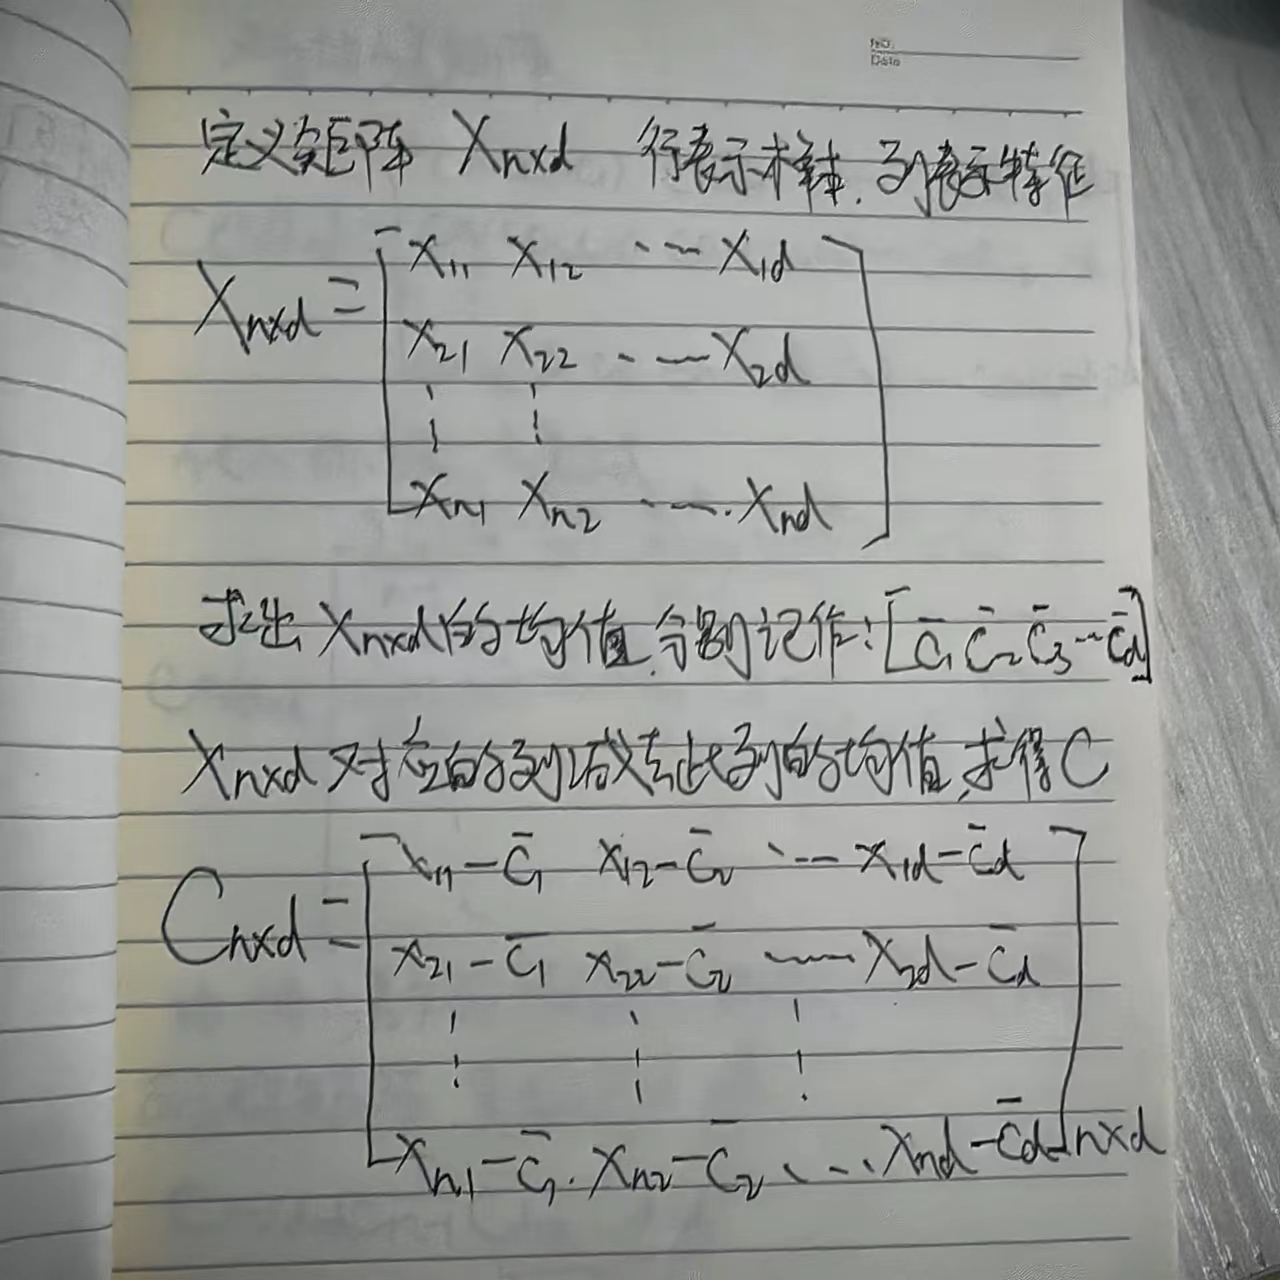 NO.
Date
定义矩阵 Xnxd 行表示样本，列表示特征
Xnxd = [ X11 X12 ... X1d
X21 X22 ... X2d
⋮ ⋮
Xn1 Xn2 ... Xnd ]
求出 Xnxd 的均值，分别记作：[C̄1 C̄2 C̄3 ... C̄d]
Xnxd 对应的列减去此列的均值，求得 C
Cnxd = [ X11-C̄1 X12-C̄2 ... X1d-C̄d
X21-C̄1 X22-C̄2 ... X2d-C̄d
⋮ ⋮ ⋮
Xn1-C̄1 Xn2-C̄2 ... Xnd-C̄d ]nxd